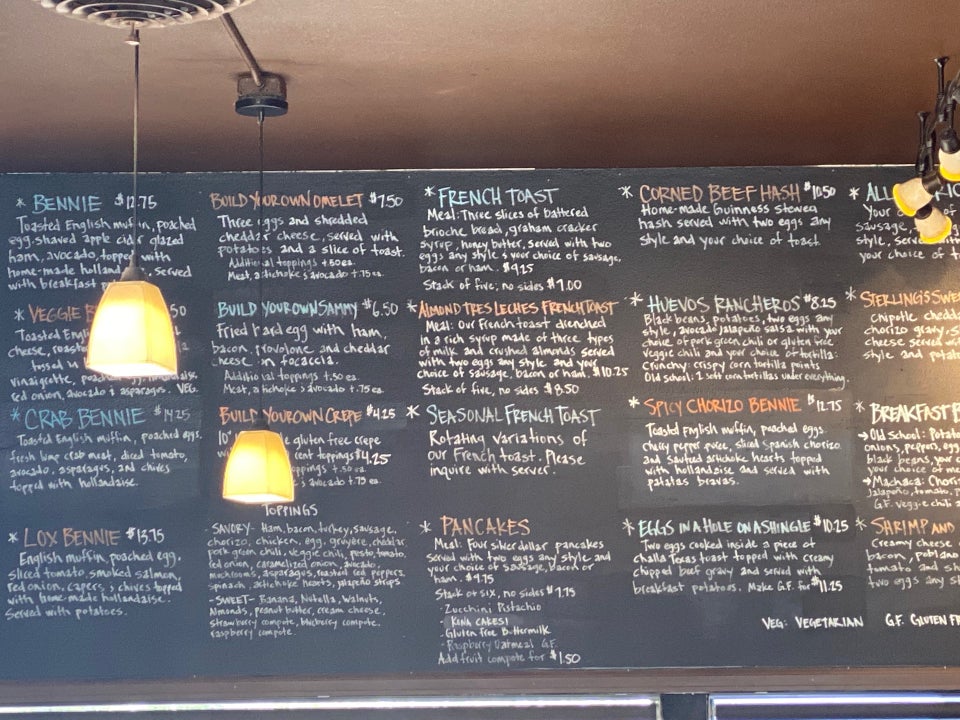 * BENNIE $12.75
Toasted English muffin, poached
egg, shaved apple cider glazed
ham, avocado, topped with
home-made served
with breakfast
* VEGGIE
Toasted
cheese,
tossed
vinaigrette, poached egg,
red onion, avocado & asparagus. VEG.
* CRAB BENNIE $14.25
Toasted English muffin, poached eggs,
fresh lump crab meat, diced tomato,
avocado, asparagus, and chives
topped with hollandaise.
* LOX BENNIE $13.75
English muffin, poached egg,
sliced tomato, smoked salmon,
red onion, capers, & chives topped
with home-made hollandaise.
Served with potatoes.
BUILD YOUR OWN OMELET $7.50
Three eggs and shredded
cheddar cheese, served with
potatoes and a slice of toast.
Additional toppings +.50 ea.
Meat, artichoke & avocado +.75 ea.
BUILD YOUR OWN SAMMY $6.50
Fried hard egg with ham,
bacon, provolone, and cheddar
cheese on focaccia.
Additional toppings +.50 ea.
Meat, artichoke & avocado +.75 ea.
BUILD YOUR OWN CREPE $4.25
10" gluten free crepe
toppings $4.25
toppings +.50 ea.
& avocado +.75 ea.
TOPPINGS
-SAVORY- Ham, bacon, turkey, sausage,
chorizo, chicken, egg, gruyere, cheddar
pork green chili, veggie chili, pesto, tomato,
red onion, caramelized onion, avocado,
mushrooms, asparagus, roasted red peppers,
spinach, artichoke hearts, jalapeño strips.
-SWEET- Banana, Nutella, Walnuts,
Almonds, peanut butter, cream cheese,
strawberry compote, blueberry compote,
raspberry compote.
* FRENCH TOAST
Meal: Three slices of battered
brioche bread, graham cracker
syrup, honey butter, served with two
eggs any style & your choice of sausage,
bacon or ham. $9.25
Stack of five; no sides $7.00
* ALMOND TRES LECHES FRENCH TOAST
Meal: Our French toast drenched
in a rich syrup made of three types
of milk and crushed almonds served
with two eggs any style and your
choice of sausage, bacon or ham. $10.25
Stack of five, no sides $8.50
* SEASONAL FRENCH TOAST
Rotating variations of
our French toast. Please
inquire with server.
* PANCAKES
Meal: Four silver dollar pancakes
served with two eggs any style and
your choice of sausage, bacon or
ham. $9.75
Stack of six, no sides $7.75
- Zucchini Pistachio
KING CAKES!
- Gluten free Buttermilk
- Raspberry Oatmeal G.F.
Add fruit compote for $1.50
* CORNED BEEF HASH $10.50
Home-made Guinness stewed
hash served with two eggs any
style and your choice of toast.
* HUEVOS RANCHEROS $8.25
Black beans, potatoes, two eggs any
style, avocado jalapeño salsa with your
choice of pork green chili or gluten free
veggie chili and your choice of tortilla:
Crunchy: crispy corn tortilla points
Old school: 2 soft corn tortillas under everything.
* SPICY CHORIZO BENNIE $12.75
Toasted English muffin, poached eggs,
cherry pepper puree, sliced Spanish chorizo
and sauteed artichoke hearts topped
with hollandaise and served with
patatas bravas.
* EGGS IN A HOLE ON A SHINGLE $10.25
Two eggs cooked inside a piece of
challa Texas toast topped with creamy
chipped beef gravy and served with
breakfast potatoes. Make G.F. for $11.25
* ALL
Your
sausage,
style, served
your choice of
* STERLING'S
chipotle
chorizo gravy,
cheese served
style and
* BREAKFAST
→ Old School:
onions, peppers,
black beans, your
your choice of
→ Machaca:
jalapeño, tomato,
G.F. veggie chili
* SHRIMP AND
Creamy cheese
bacon, poblano
tomato and
two eggs any
VEG: VEGETARIAN G.F. GLUTEN